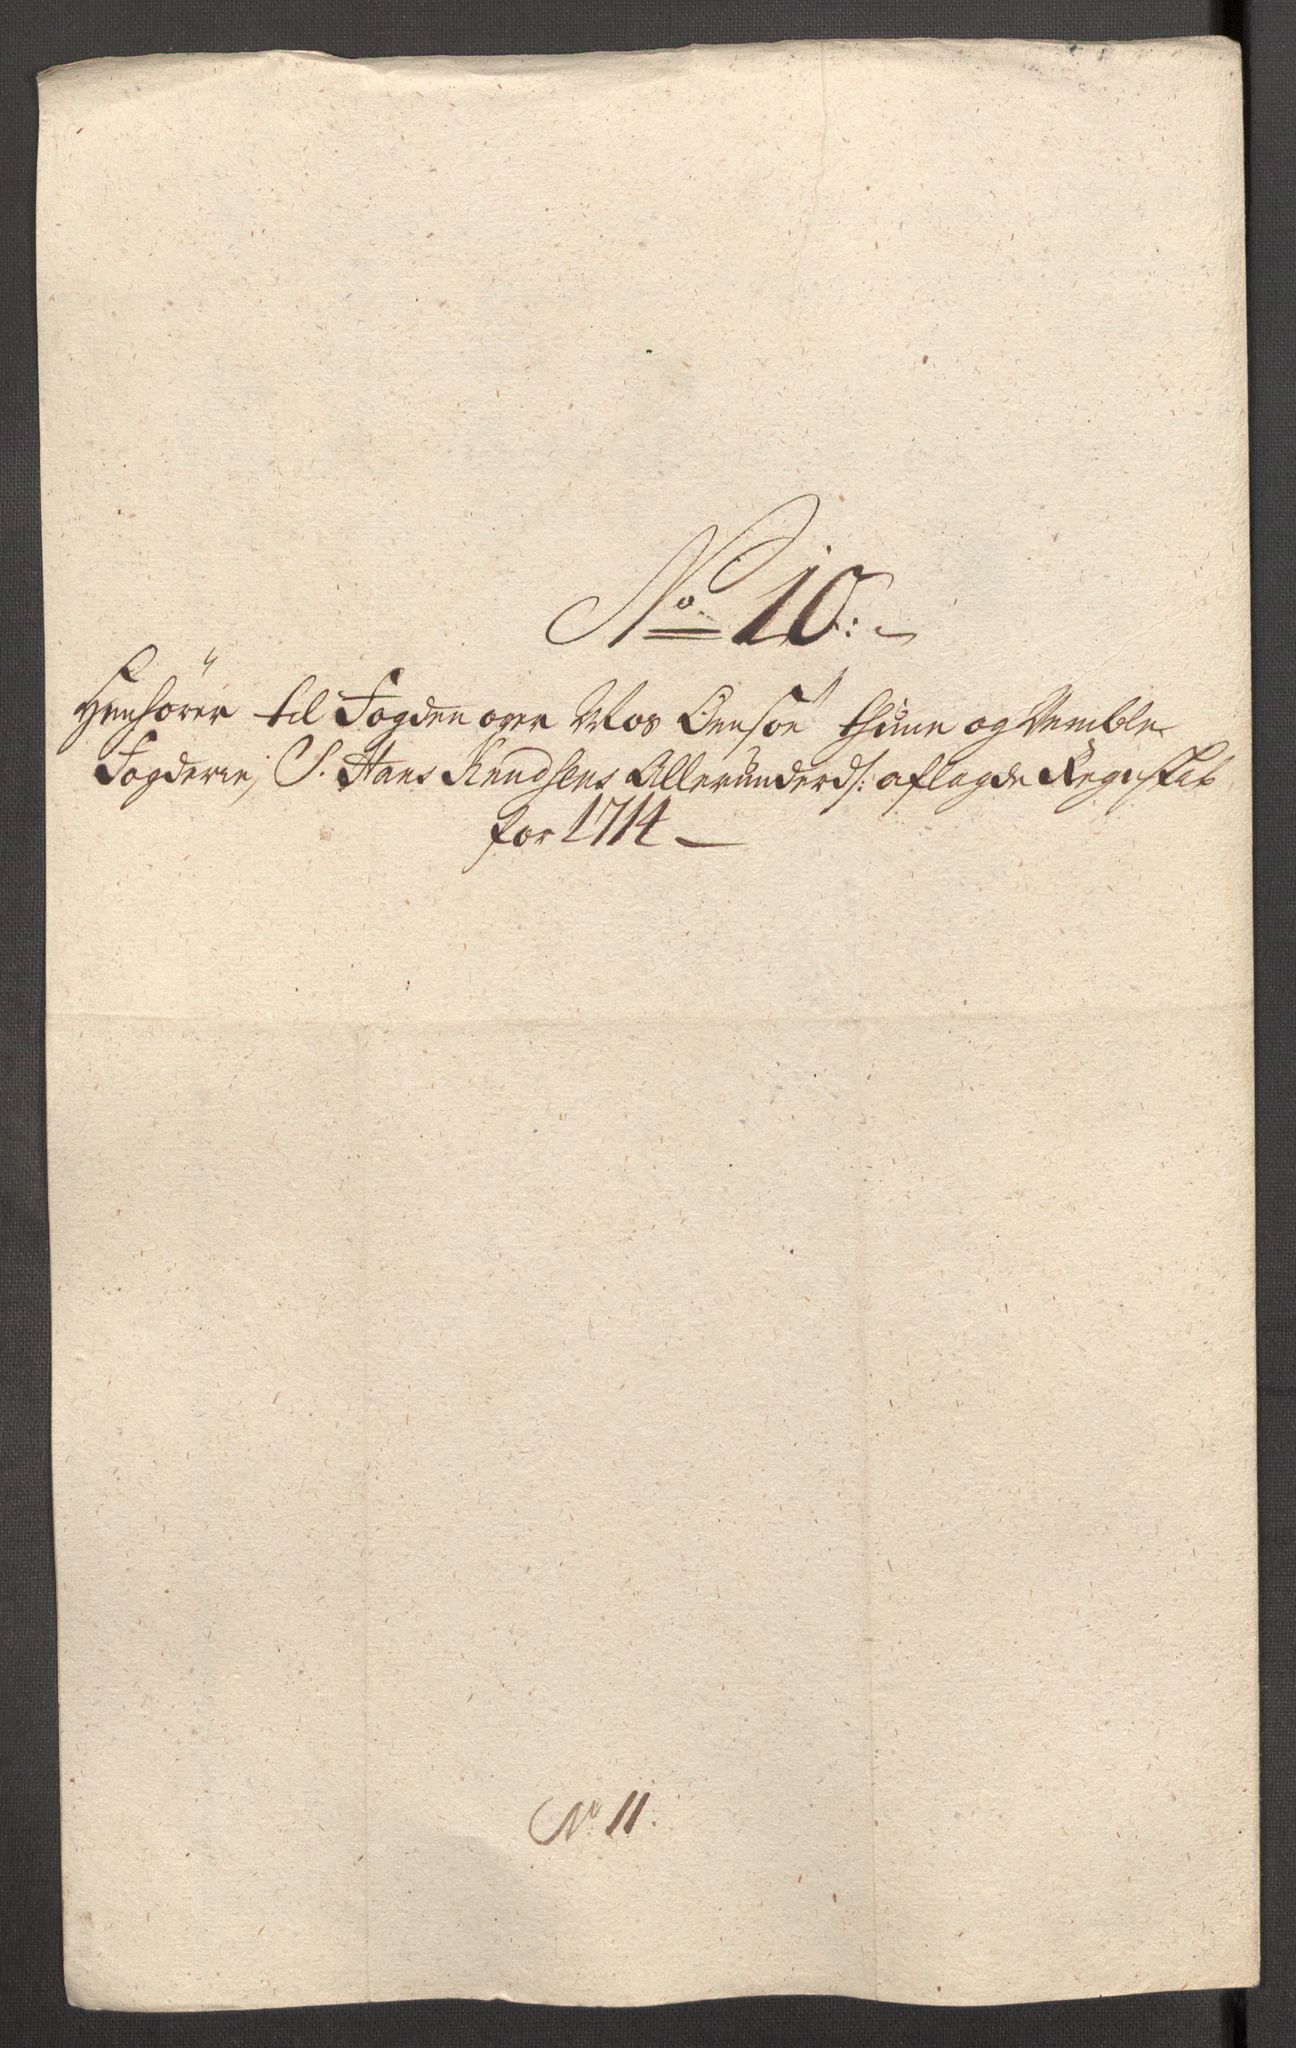 No 10:
Henhører til Fogden over Mos Onsøe Thune og Vemble
Fogderie, S. Hans Knudsens Allerunderd: aflagde Regnskab
for 1714
No 11.